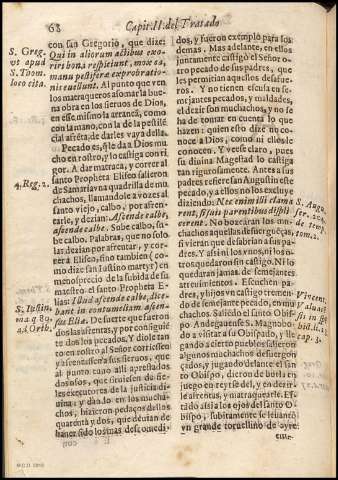 68 Capit. II. del Tratado
S. Greg.
vt apud
S. Thom.
loco cita.
4. Reg. 2.
S. Iustin.
ma q. 80.
ad Orto.
con san Gregorio, que dize:
Qui in aliorum actibus exo-
riri bona respiciunt, mox ea,
manu pestiferæ exprobratio-
nis euellunt. Al punto que ven
los matraqueros asomar la bue-
na obra en los sieruos de Dios,
en esse mismo la arrancã, como
con la mano, con la de la pestilẽ
cial afrẽta, de darles vaya della.
Pecado es, q̃ le da a Dios mu
cho en rostro, y lo castiga con ri
gor. A dar matraca, y correr al
santo Propheta Eliseo salieron
de Samaria vna quadrilla de mu
chachos, llamandole a vozes al
santo viejo, calbo, por afren-
tarle, y dezian: Ascende calbe,
ascende calbe. Sube calbo, su-
be calbo. Palabras, que no solo
las dezian por afrentar, y cor-
rer a Eliseo, sino tambien (co-
mo dize san Iustino martyr) en
menosprecio de la subida de su
maestro el santo Propheta E-
lias: Illud ascende calbe, dice-
bant in contumeliam ascen-
sus Eliæ. De fuerte que fueron
dos las afrentas, y por consiguiẽ
te dos los pecados. Y diole tan
en rostro al Señor corriessen
y afrentassen a sus sieruos, que
al punto tuuo alli aprestados
dos osos, que siruiessen de fie-
les executores de la justicia di-
uina, y de todos los mucha-
chos, hizieron pedaços dellos
quarenta y dos, que deuian de
hauer sido los mas descomedi-
dos, y fueron exemplo para los
demas. Mas adelante, en ellos
juntamente castigò el Señor o-
tro pecado de sus padres, que
les permitian aquellos desafue-
ros. Y no tienen escusa en se-
mejantes pecados, y maldades,
el dezir son muchachos, y no se
ha de tomar en cuenta lo que
hazen: quien esto dize no co-
noce a Dios, como ni ellos le
conocen. Y vese claro, pues
su diuina Magestad lo castiga
tan rigurosamente. Antes a sus
padres refiere san Augustin este
pecado, y a ellos no los excluye
diziendo: Nec enim illi clama
rent, si suis parentibus displi
cerent. No bozearan los mu-
chachos aquellas desuergueças,
si vieran que desabrian a sus pa-
dres. Y assi ni los vnos, ni los o-
tros quedaron sin castigo. Ni lo
quedaran jamas, de semejantes
atreuimientos. Escuchen pa-
dres, y hijos vn castigo tremen-
do de atreuimiento de mu-
chachos. Saliẽdo el santo Obis-
po Andegauense S. Magnobo-
do a visitar su Obispado, y lle-
gando a cierto pueblo salieron
algunos muchachos desuergon-
çados, y jugando delante del sã-
to Obispo, dieron de burla en
juego en reyrse del, y en dezirle
afrentas, y matraquearle. El da-
do assi a los ojos del santo O-
bispo, subitamente se leuantò
vn grande toruellino de ayre
S. Augu.
ser. 204.
de temp.
tom. 2.
Vincent.
Valuasẽ
sis in spe
bist. li. 23.
cap. 3.